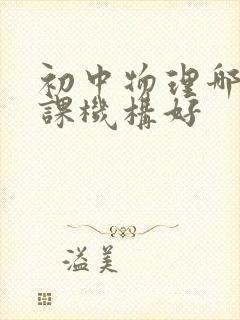 初中物理哪
課機構好
溢美